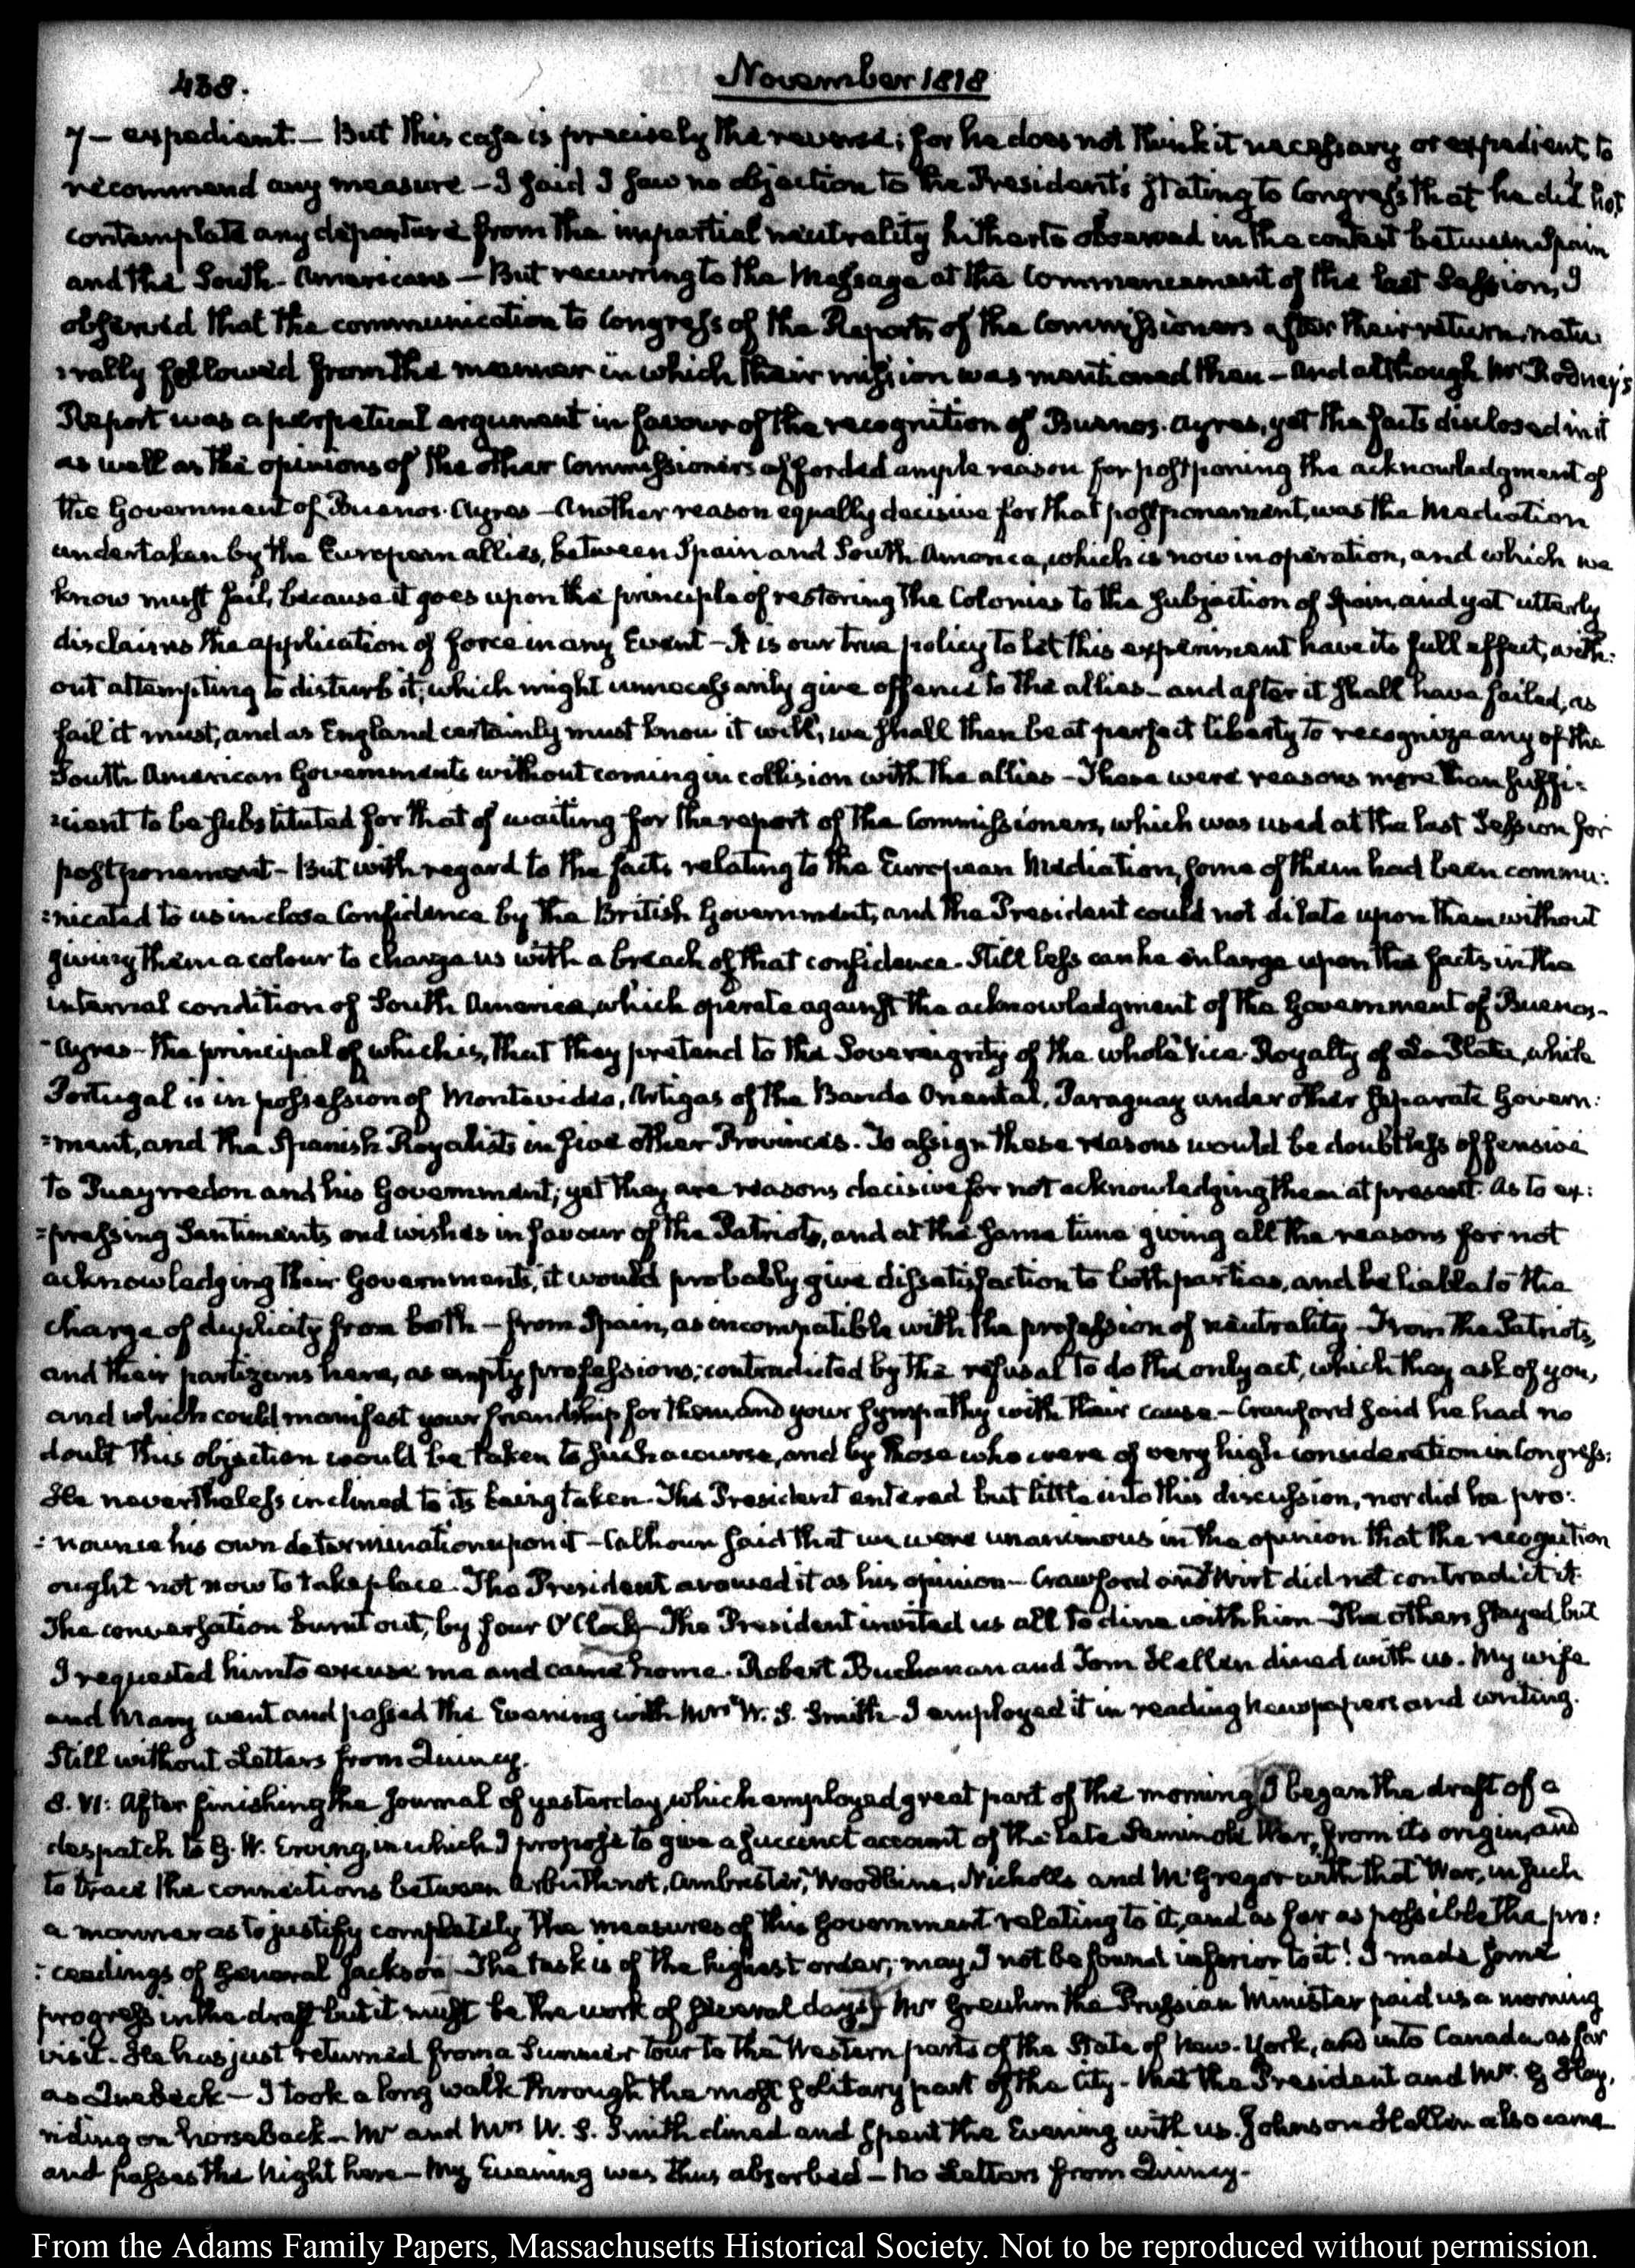 438.
November 1818
7 — expedient. — But this case is precisely the reverse; for he does not think it necessary or expedient, to
recommend any measure — I said I saw no objection to the President's stating to Congress that he did not
contemplate any departure from the impartial neutrality hitherto observed in the contest between Spain
and the South-Americans — But recurring to the Message at the Commencement of the last Session, I
observed that the communication to Congress of the Reports of the Commissioners after their return, natu
:rally followed from the manner in which their mission was mentioned then — and although Mr Rodney's
Report was a perpetual argument in favour of the recognition of Buenos-Ayres, yet the facts disclosed in it
as well as the opinions of the other Commissioners afforded ample reason for postponing the acknowledgment of
the Government of Buenos-Ayres — Another reason equally decisive for that postponement, was the Mediation
undertaken by the European allies, between Spain and South America, which is now in operation, and which we
know must fail, because it goes upon the principle of restoring the Colonies to the subjection of Spain, and yet utterly
disclaims the application of force in any Event — It is our true policy to let this experiment have its full effect, with:
out attempting to disturb it; which might unnecessarily give offence to the allies — and after it shall have failed, as
fail it must, and as England certainly must know it will, we shall then be at perfect liberty to recognize any of the
South American Governments without coming in collision with the allies — These were reasons more than suffi:
:cient to be substituted for that of waiting for the report of the Commissioners, which was used at the last Session for
postponement — But with regard to the facts relating to the European Mediation, some of them had been commu:
:nicated to us in close Confidence by the British Government, and the President could not dilate upon them without
giving them a colour to charge us with a breach of that confidence. Still less can he enlarge upon the facts in the
internal condition of South America, which operate against the acknowledgment of the Government of Buenos-
-Ayres — the principal of which is, that they pretend to the Sovereignty of the whole Vice-Royalty of La Plata, while
Portugal is in possession of Montevideo, Artigas of the Banda Oriental, Paraguay under other separate Govern:
:ment, and the Spanish Royalists in five other Provinces. To assign these reasons would be doubtless offensive
to Pueyrredon and his Government; yet they are reasons decisive for not acknowledging them at present. As to ex:
:pressing Sentiments and wishes in favour of the Patriots, and at the same time giving all the reasons for not
acknowledging their Governments, it would probably give dissatisfaction to both parties, and be liable to the
charge of duplicity from both — from Spain, as incompatible with the profession of neutrality — From the Patriots,
and their partizans here, as empty professions; contradicted by the refusal to do the only act, which they ask of you,
and which could manifest your friendship for them and your sympathy with their cause. — Crawford said he had no
doubt this objection would be taken to such a course, and by those who were of very high consideration in Congress:
He nevertheless inclined to its being taken. The President entered but little into this discussion, nor did he pro:
:nounce his own determination upon it — Calhoun said that we were unanimous in the opinion that the recognition
ought not now to take place. The President avowed it as his opinion — Crawford and Wirt did not contradict it.
The conversation burnt out, by four O'Clock — The President invited us all to dine with him — The others stayed, but
I requested him to excuse me and came home. Robert Buchanan and Tom Hellen dined with us. My wife
and Mary went and passed the Evening with Mrs W. S. Smith — I employed it in reading Newspapers and writing.
Still without Letters from Quincy.
8. VI: After finishing the Journal of yesterday, which employed great part of the morning, I began the draft of a
despatch to G. W. Erving, in which I propose to give a succinct account of the late Seminole War, from its origin, and
to trace the connections between Arbuthnot, Ambrister, Woodbine, Nicholls and McGregor with that War, in such
a manner as to justify completely the measures of this Government relating to it, and as far as possible the pro:
:ceedings of General Jackson — The task is of the highest order; may I not be found inferior to it! I made some
progress in the draft but it must be the work of several days. Mr Greuhm the Prussian Minister paid us a morning
visit. He has just returned from a Summer tour to the Western parts of the State of New-York, and into Canada as far
as Quebeck — I took a long walk through the most solitary part of the City. Met the President and Mr. G. Hay,
riding on horseback — Mr and Mrs W. S. Smith dined and spent the Evening with us. Johnson Hellen also came
and passes the Night here — My Evening was thus absorbed — No Letters from Quincy.
From the Adams Family Papers, Massachusetts Historical Society. Not to be reproduced without permission.